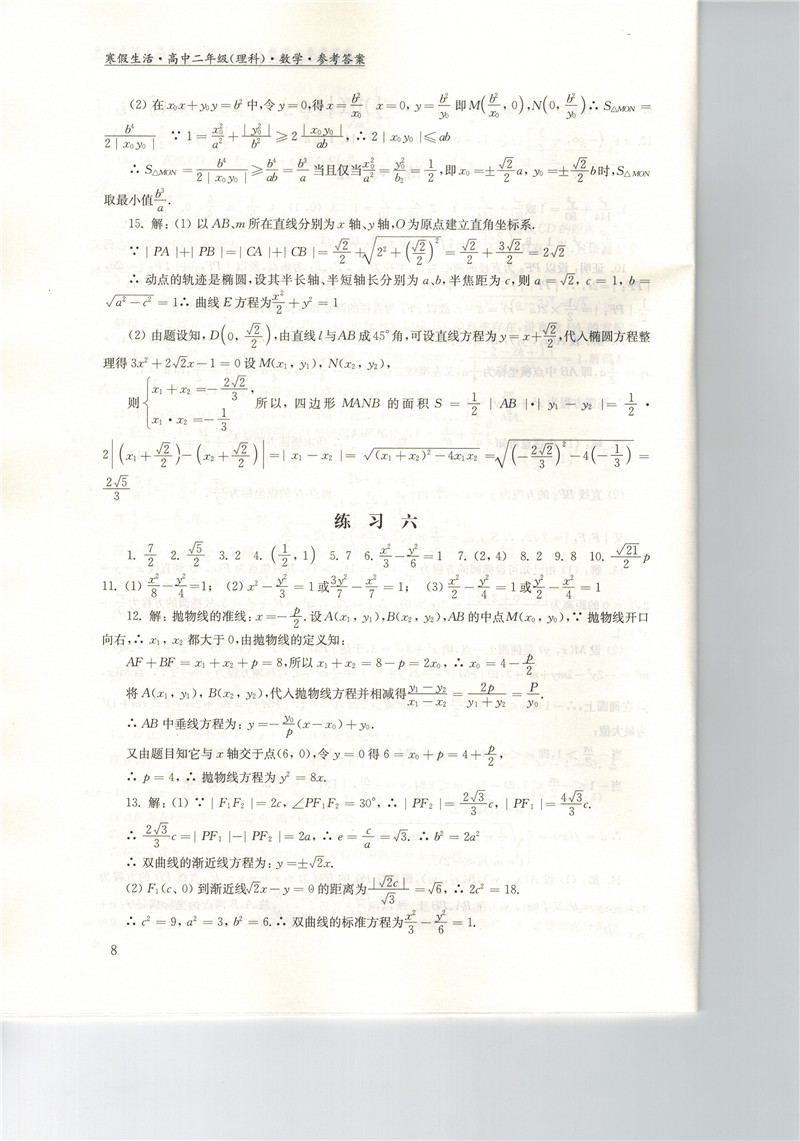 寒假生活·高中二年级(理科)·数学·参考答案
(2) 在 x₀x + y₀y = b² 中,令 y = 0,得 x = b²/x₀  x = 0, y = b²/y₀ 即 M(b²/x₀, 0), N(0, b²/y₀) ∴ S△MON =
b⁴/(2|x₀y₀|) ∵ 1 = x₀²/a² + |y₀²|/b² ≥ 2|x₀y₀|/ab, ∴ 2|x₀y₀| ≤ ab
∴ S△MON = b⁴/(2|x₀y₀|) ≥ b⁴/ab = b³/a 当且仅当 x₀²/a² = y₀²/b₂ = 1/2, 即 x₀ = ±(√2/2)a, y₀ = ±(√2/2)b时, S△MON
取最小值 b³/a.
15. 解: (1) 以 AB、m 所在直线分别为 x 轴、y 轴,O 为原点建立直角坐标系.
∵ |PA|+|PB| = |CA|+|CB| = √2/2 + √(2² + (√2/2)²) = √2/2 + 3√2/2 = 2√2
∴ 动点的轨迹是椭圆,设其半长轴、半短轴长分别为 a、b,半焦距为 c,则 a = √2, c = 1, b =
√(a² − c²) = 1 ∴ 曲线 E 方程为 x²/2 + y² = 1
(2) 由题设知, D(0, √2/2), 由直线 l 与 AB 成 45°角,可设直线方程为 y = x + √2/2, 代入椭圆方程整
理得 3x² + 2√2x − 1 = 0 设 M(x₁, y₁), N(x₂, y₂),
则 { x₁ + x₂ = −2√2/3, x₁ · x₂ = −1/3 所以, 四边形 MANB 的面积 S = 1/2 |AB|·|y₁ − y₂| = 1/2 ·
2|(x₁ + √2/2) − (x₂ + √2/2)| = |x₁ − x₂| = √((x₁ + x₂)² − 4x₁x₂) = √((−2√2/3)² − 4(−1/3)) =
2√5/3
练 习 六
1. 7/2  2. √5/2  3. 2  4. (1/2, 1)  5. 7  6. x²/3 − y²/6 = 1  7. (2, 4)  8. 2  9. 8  10. (√21/2)p
11. (1) x²/8 − y²/4 = 1; (2) x² − y²/3 = 1 或 3y²/7 − x²/7 = 1; (3) x²/2 − y²/4 = 1 或 y²/2 − x²/4 = 1
12. 解: 抛物线的准线: x = −p/2. 设 A(x₁, y₁), B(x₂, y₂), AB 的中点 M(x₀, y₀), ∵ 抛物线开口
向右, ∴ x₁, x₂ 都大于 0, 由抛物线的定义知:
AF + BF = x₁ + x₂ + p = 8, 所以 x₁ + x₂ = 8 − p = 2x₀, ∴ x₀ = 4 − p/2
将 A(x₁, y₁), B(x₂, y₂), 代入抛物线方程并相减得 (y₁ − y₂)/(x₁ − x₂) = 2p/(y₁ + y₂) = P/y₀.
∴ AB 中垂线方程为: y = −(y₀/p)(x − x₀) + y₀.
又由题目知它与 x 轴交于点(6, 0), 令 y = 0 得 6 = x₀ + p = 4 + p/2,
∴ p = 4, ∴ 抛物线方程为 y² = 8x.
13. 解: (1) ∵ |F₁F₂| = 2c, ∠PF₁F₂ = 30°, ∴ |PF₂| = (2√3/3)c, |PF₁| = (4√3/3)c.
∴ (2√3/3)c = |PF₁| − |PF₂| = 2a, ∴ e = c/a = √3. ∴ b² = 2a²
∴ 双曲线的渐近线方程为: y = ±√2x.
(2) F₁(c、0) 到渐近线 √2x − y = 0 的距离为 |√2c|/√3 = √6, ∴ 2c² = 18.
∴ c² = 9, a² = 3, b² = 6. ∴ 双曲线的标准方程为 x²/3 − y²/6 = 1.
8